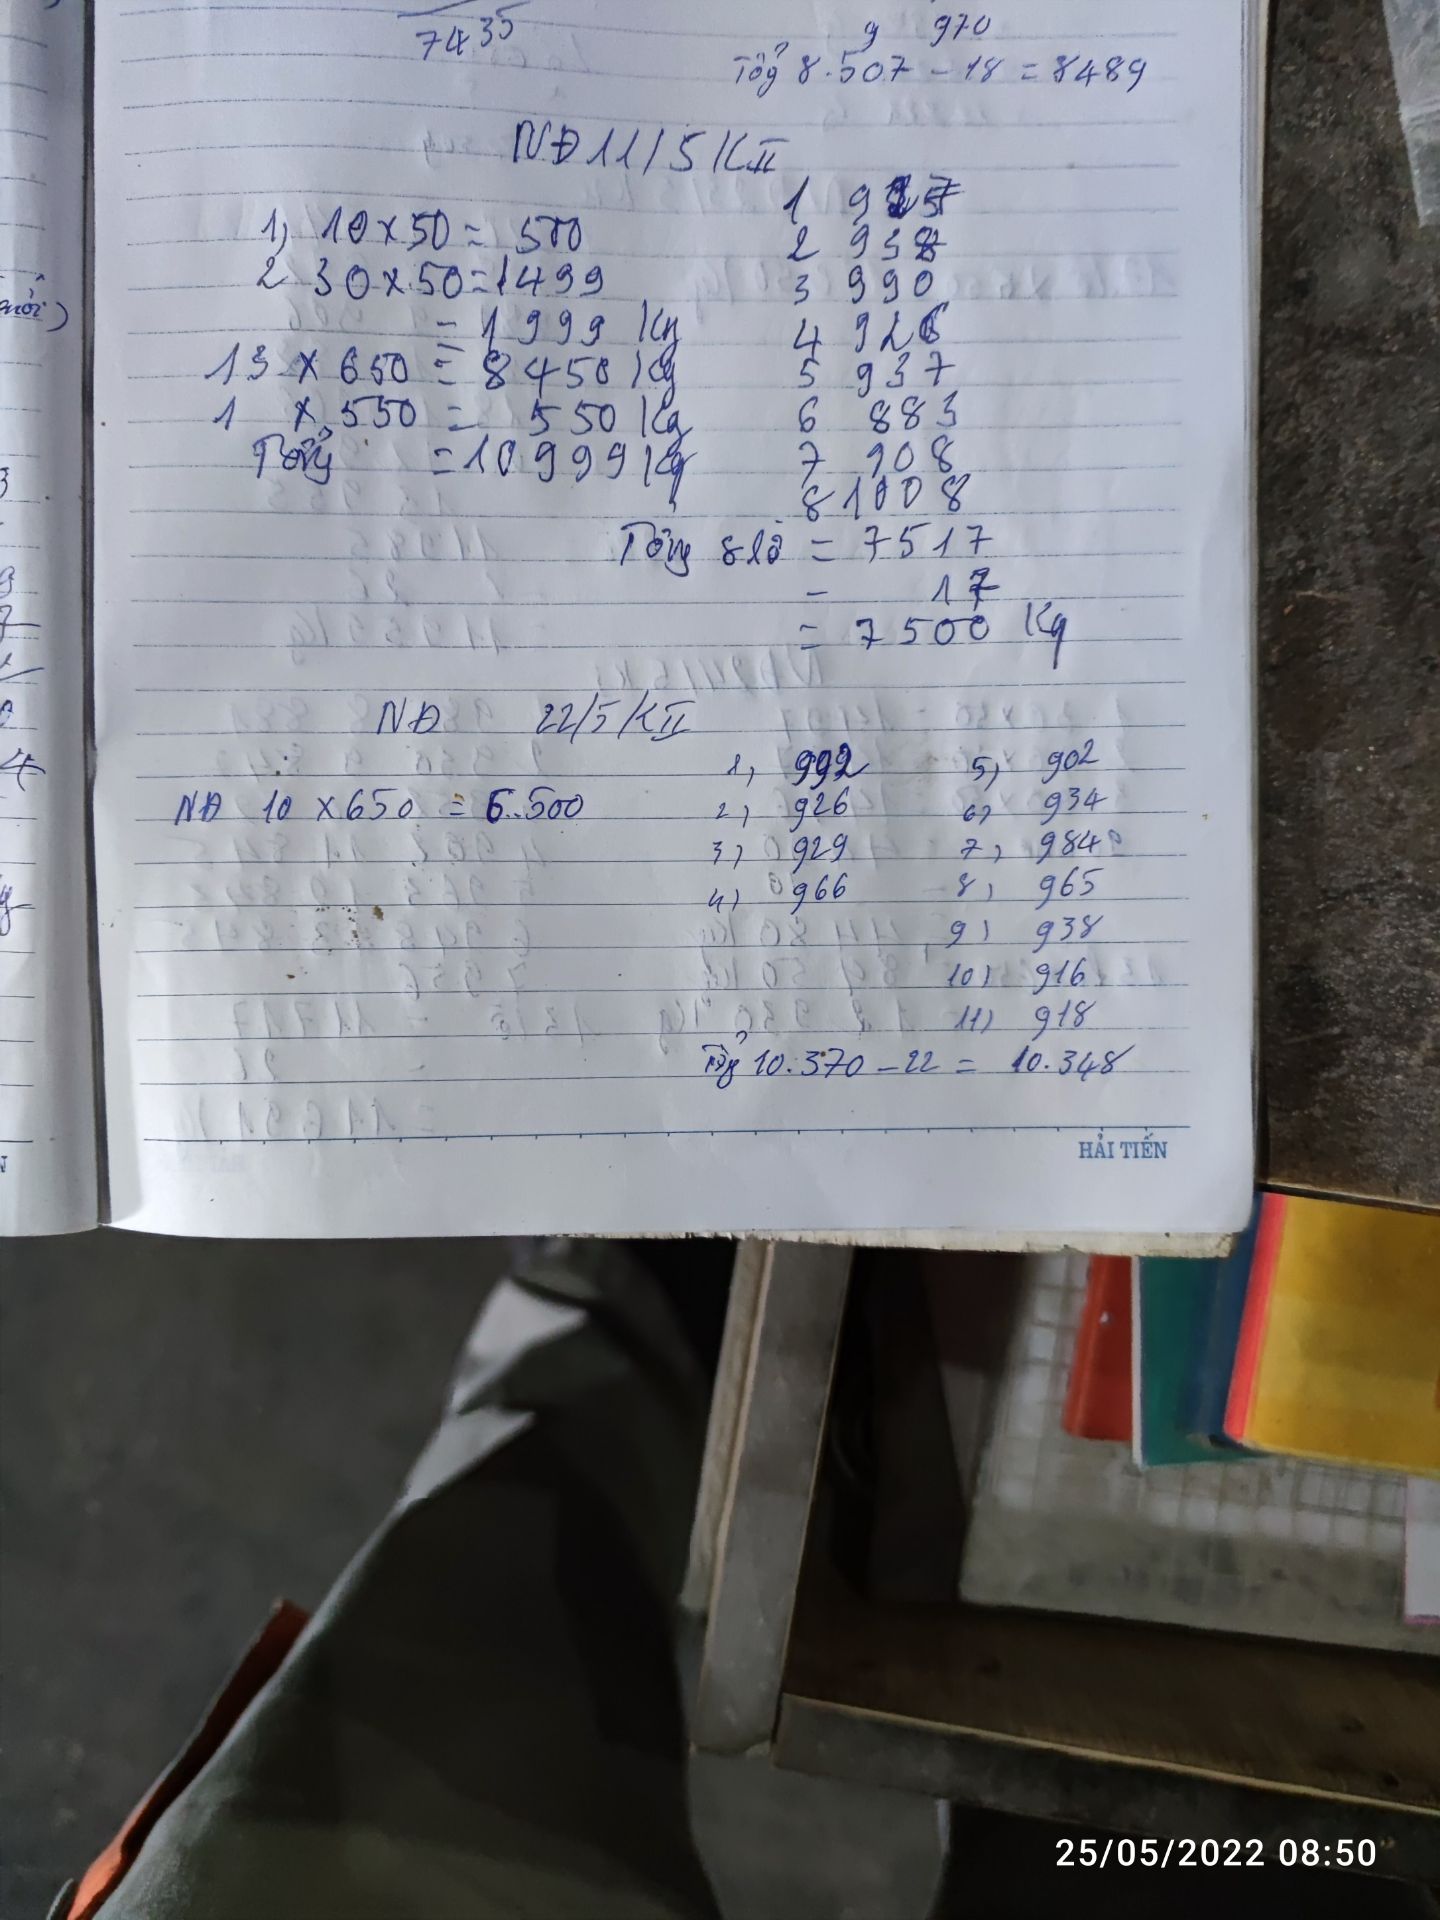 7435
9 970
Tổg 8.507 - 18 = 8489
NĐ 11/5 KII
1, 10 x 50 = 500
2 30 x 50 = 1499
= 1999 Kg
13 x 650 = 8450 Kg
1 x 550 = 550 Kg
Tổng = 10999 Kg
1
2 938
3 990
4 926
5 937
6 883
7 908
8 1008
Tổng 8 lô = 7517
- 17
= 7500 Kg
NĐ 22/5/KII
NĐ 10 x 650 = 6.500
1, 992
2, 926
3, 929
4, 966
5, 902
6, 934
7, 984
8, 965
9, 938
10, 916
11, 918
Tổg 10.370 - 22 = 10.348
HẢI TIẾN
25/05/2022 08:50